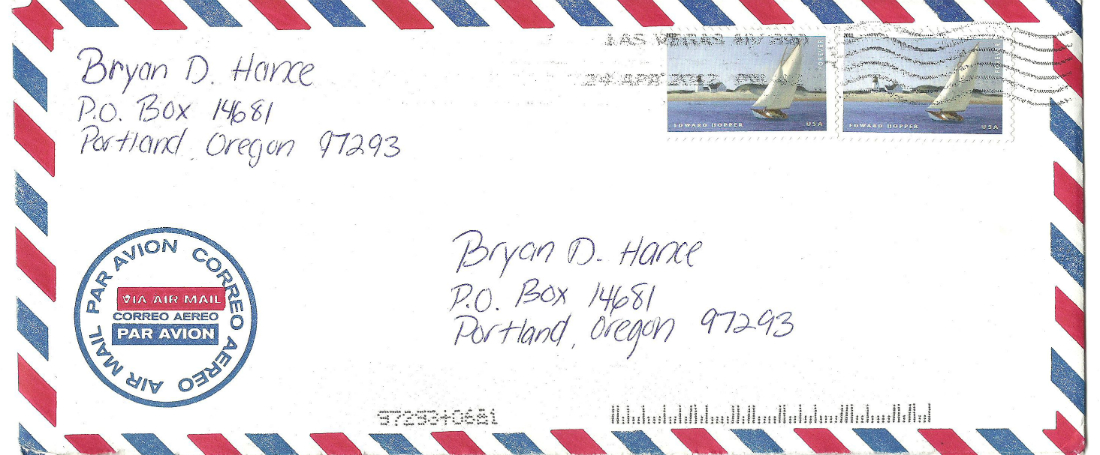 Bryan D. Hance
P.O. Box 14681
Portland, Oregon 97293
LAS VEGAS
24 APR 2012
2011
EDWARD HOPPER
USA
EDWARD HOPPER
USA
Bryan D. Hance
P.O. Box 14681
Portland, Oregon 97293
PAR AVION CORREO AEREO AIR MAIL
VIA AIR MAIL
CORREO AEREO
PAR AVION
97293+0681